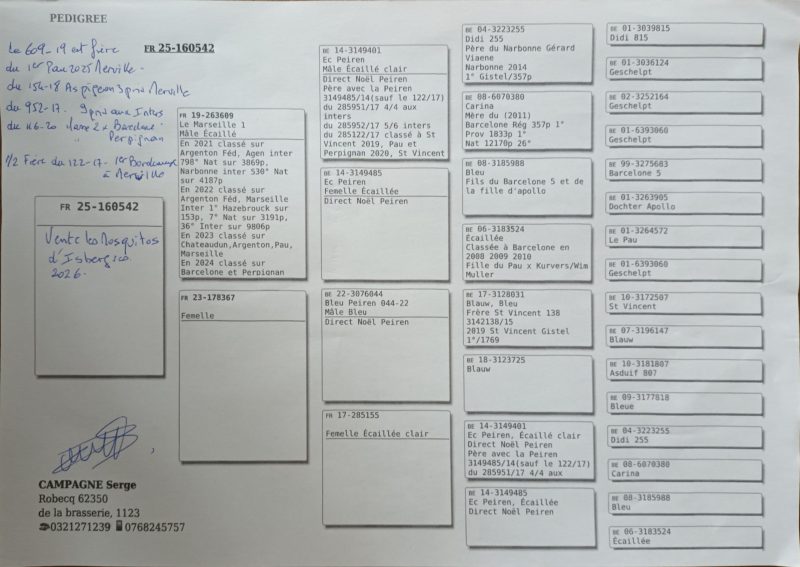 PEDIGREE
FR 25-160542
Le 609-19 est frère
du 1er Pau 2025 Merville.
du 154-18 As pigeon 3 pris Merville
du 952-17. 5 prix aux Inters
du 116-20 classé 2x Barcelone
" Perpignan
1/2 Frère du 122-17- 1er Bordeaux
à Merville
FR 25-160542
Vente les Mosquitos
d'Isbergues
2026.
CAMPAGNE Serge
Robecq 62350
de la brasserie, 1123
☎0321271239 0768245757
FR 19-263609
Le Marseille 1
Mâle Écaillé
En 2021 classé sur
Argenton Féd, Agen inter
798° Nat sur 3869p,
Narbonne inter 530° Nat
sur 4187p
En 2022 classé sur
Argenton Féd, Marseille
Inter 1° Hazebrouck sur
153p, 7° Nat sur 3191p,
36° Inter sur 9806p
En 2023 classé sur
Chateaudun,Argenton,Pau,
Marseille
En 2024 classé sur
Barcelone et Perpignan
FR 23-178367
Femelle
BE 14-3149401
Ec Peiren
Mâle Écaillé clair
Direct Noël Peiren
Père avec la Peiren
3149485/14(sauf le 122/17)
du 285951/17 4/4 aux
inters
du 285952/17 5/6 inters
du 285122/17 classé à St
Vincent 2019, Pau et
Perpignan 2020, St Vincent
BE 14-3149485
Ec Peiren
Femelle Écaillée
Direct Noël Peiren
BE 22-3076044
Bleu Peiren 044-22
Mâle Bleu
Direct Noël Peiren
FR 17-285155
Femelle Écaillée clair
BE 04-3223255
Didi 255
Père du Narbonne Gérard
Viaene
Narbonne 2014
1° Gistel/357p
BE 08-6070380
Carina
Mère du (2011)
Barcelone Rég 357p 1°
Prov 1833p 1°
Nat 12170p 26°
BE 08-3185988
Bleu
Fils du Barcelone 5 et de
la fille d'apollo
BE 06-3183524
Écaillée
Classée à Barcelone en
2008 2009 2010
Fille du Pau x Kurvers/Wim
Muller
BE 17-3128031
Blauw, Bleu
Frère St Vincent 138
3142138/15
2019 St Vincent Gistel
1°/1769
BE 18-3123725
Blauw
BE 14-3149401
Ec Peiren, Écaillé clair
Direct Noël Peiren
Père avec la Peiren
3149485/14(sauf le 122/17)
du 285951/17 4/4 aux
BE 14-3149485
Ec Peiren, Écaillée
Direct Noël Peiren
BE 01-3039815
Didi 815
BE 01-3036124
Geschelpt
BE 02-3252164
Geschelpt
BE 01-6393060
Geschelpt
BE 99-3275683
Barcelone 5
BE 01-3263905
Dochter Apollo
BE 01-3264572
Le Pau
BE 01-6393060
Geschelpt
BE 10-3172507
St Vincent
BE 07-3196147
Blauw
BE 10-3181807
Asduif 807
BE 09-3177818
Bleue
BE 04-3223255
Didi 255
BE 08-6070380
Carina
BE 08-3185988
Bleu
BE 06-3183524
Écaillée